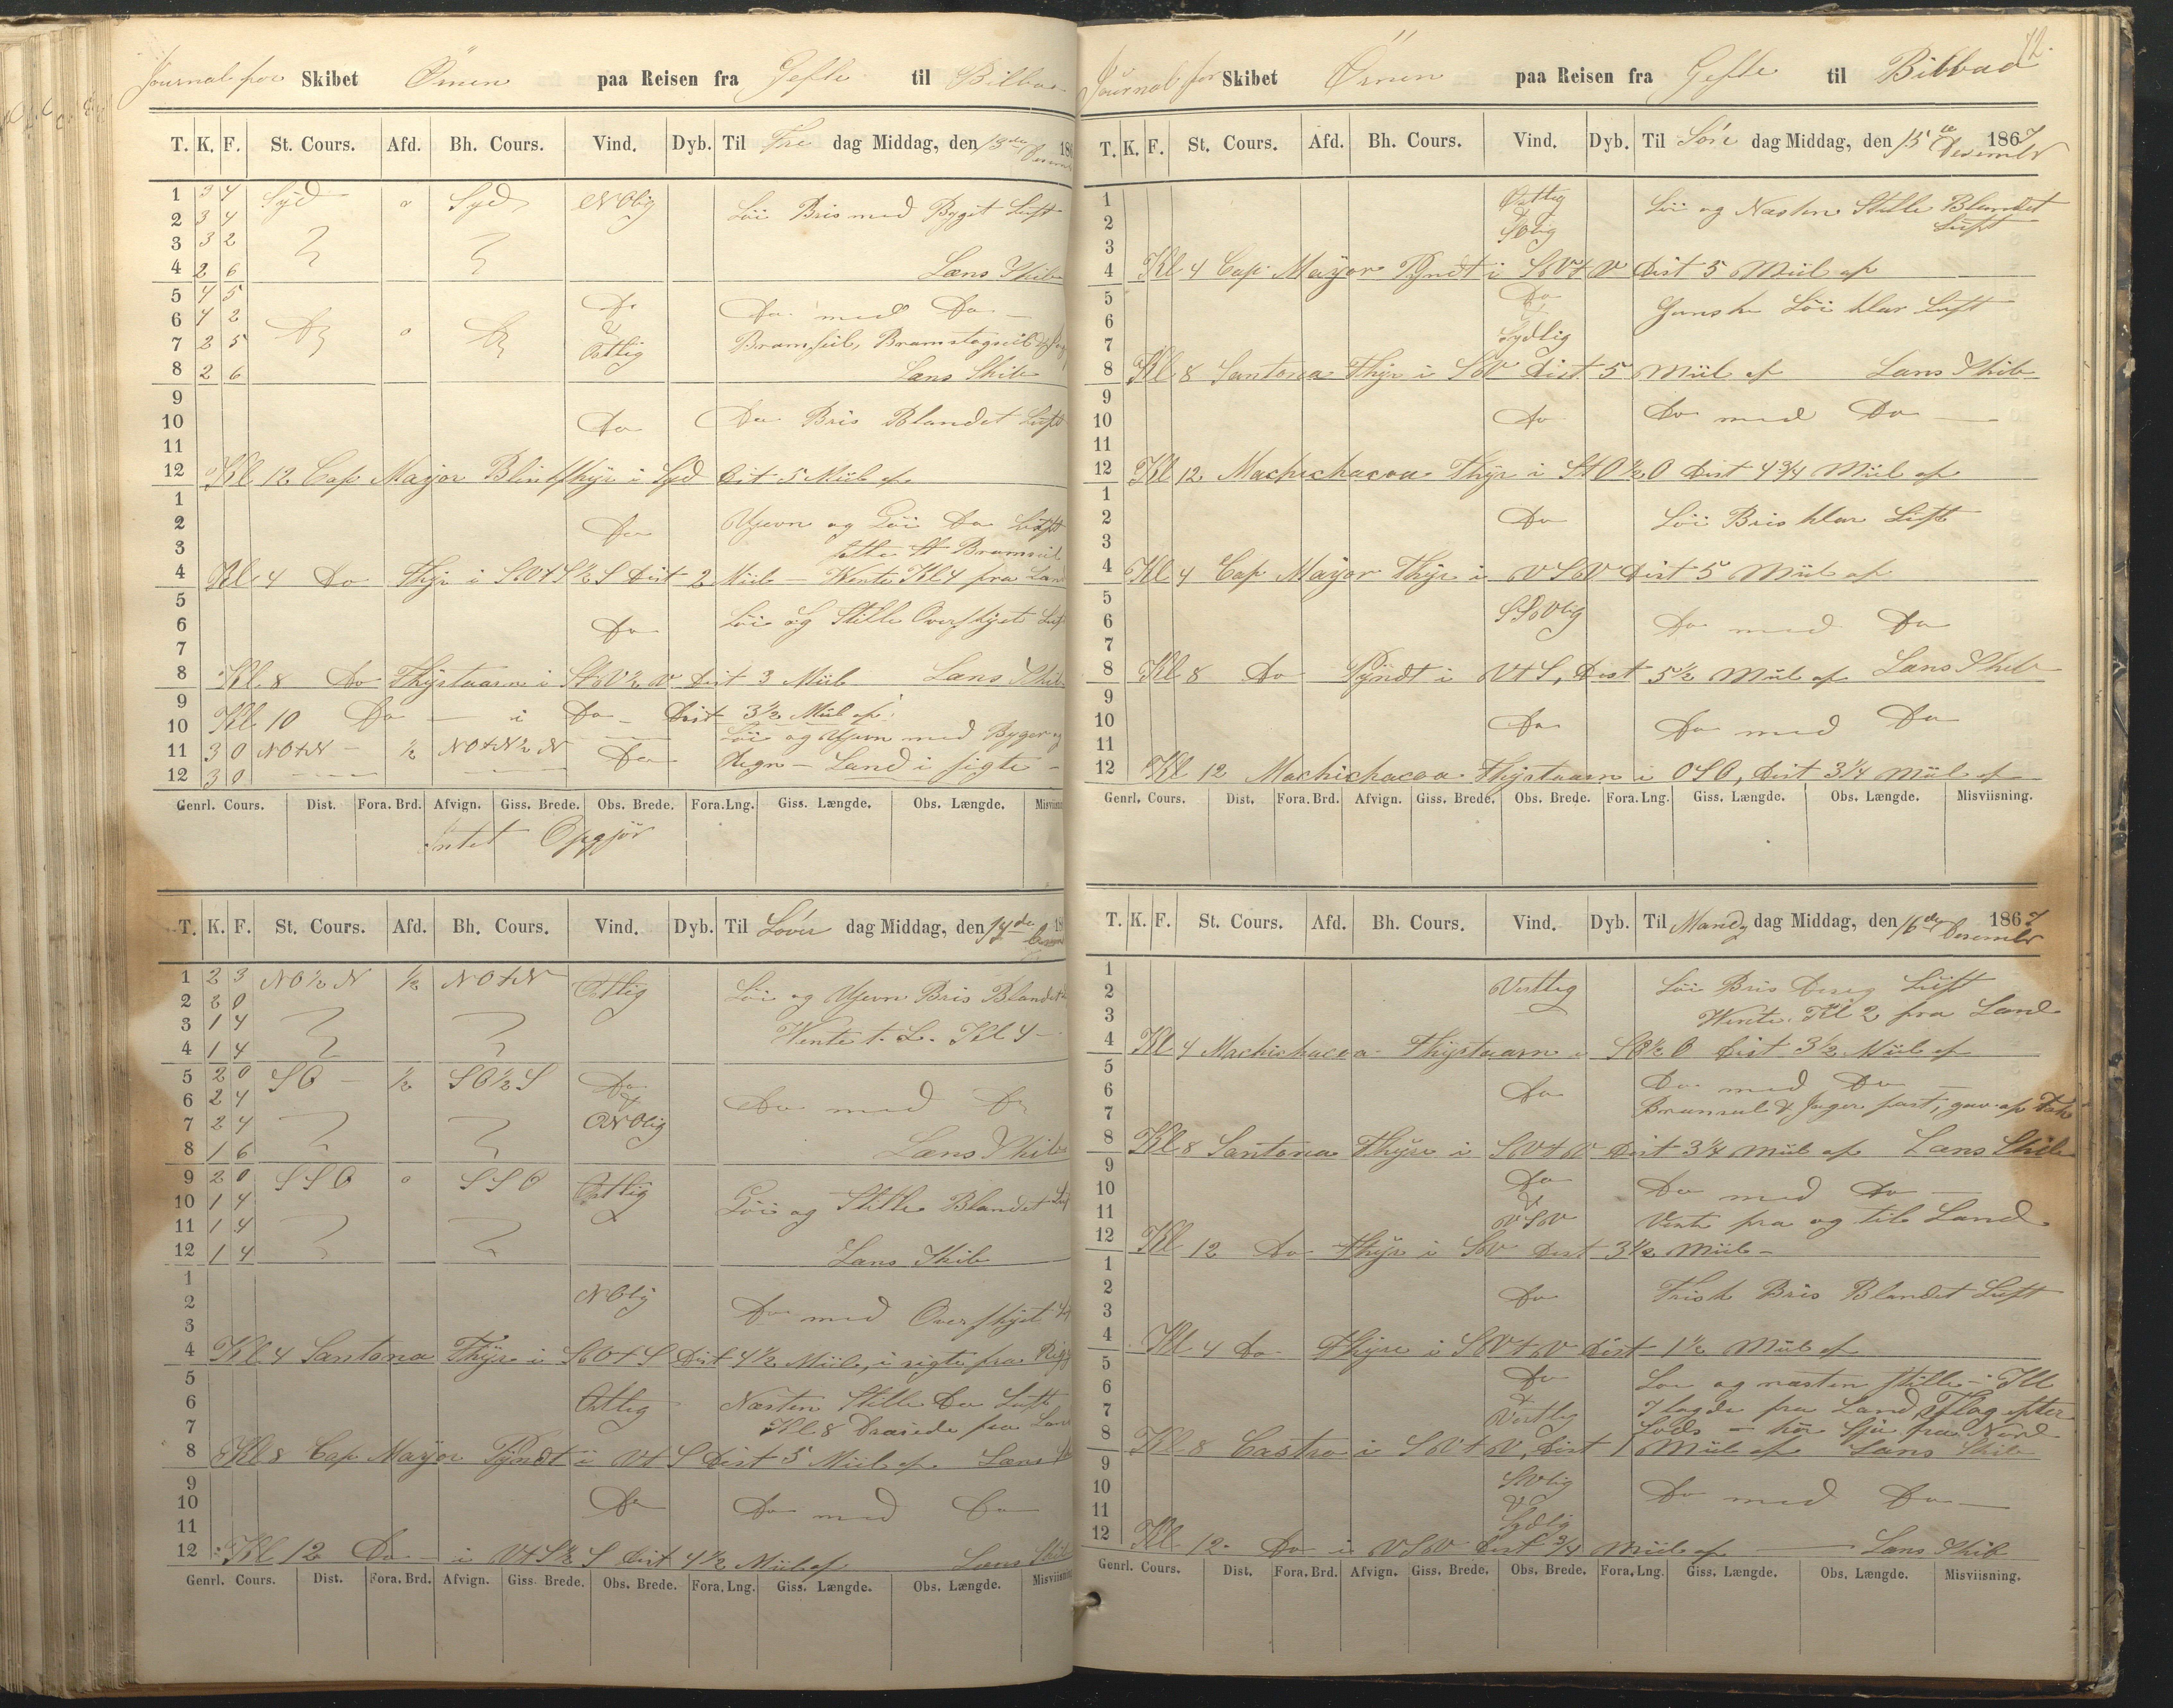 Journal for Skibet Örnen paa Reisen fra Gefle til Bilbao
T. K. F. St. Cours. Afd. Bh. Cours. Vind. Dyb. Til Fre dag Middag, den 13de Decem 186
1 3 4 Syd 0 Syd NOlig
2 3 4 Löi Bris med Byget Luft
3 3 2
4 2 6 Læns Skib
5 4 5 Do
6 4 2 Do 0 Do & Do med Do
7 2 5 Östlig Bramseil, Bramstagseil
8 2 6 Læns Skib
9
10 Do Do Bris Blandet Luft
11
12 Kl 12 Cap Mayor Blinkfhyr i Syd Dist 5 Miil af
1
2 Do Ujevn og Löi Do Luft
3 satte St Bramseil
4 Kl 4 Do Fhyr i SVtS½S Dist 2 Miil – Wente Kl 4 fra Land
5
6 Do Löi og Stille Overskyet Luft
7
8 Kl. 8 Do Fhyrtaarn i StV½V Dist 3 Miil Læns Skib
9
10 Kl 10 Do – i Do – Dist 3½ Miil af
Löi og Ujevn med Byger og
11 3 0 NOtN – ½ NOtN½N Do Regn – Land i sigte –
12 3 0
Genrl. Cours. Dist. Fora. Brd. Afvign. Giss. Brede. Obs. Brede. Fora. Lng. Giss. Længde. Obs. Længde. Misviisn
Intet Opgjör
T. K. F. St. Cours. Afd. Bh. Cours. Vind. Dyb. Til Löver dag Middag, den 14de 18
1 2 3 NO½N ½ NOtN Östlig Löi og Ujevn Bris Blandet
2 2 0
3 1 4 Wente t. L. Kl 4 –
4 1 4
5 2 0 SO – ½ SO½S Do
6 2 4 & Do med Do
7 2 4 ONOlig
8 1 6 Læns Skib
9 2 0 SSO 0 SSO Östlig
10 1 4 Löi og Stille Blandet Luf
11 1 4
12 1 4 Læns Skib
1
2 NOlig Do med Overskyet
3
4 Kl 4 Santona Fhyr i SVtS Dist 4½ Miile, i sigte fra Rigg
5
6 Östlig Næsten Stille Do Luft
7 Kl 8 Draiede fra Lan
8 Kl 8 Cap Mayor Pyndt i VtS Dist 5 Miil af Læns
9
10 Do Do med Do
11
12 Kl 12 Do – i VtS½S Dist 4½ Miil af Læns Skib
Genrl. Cours. Dist. Fora. Brd. Afvign. Giss. Brede. Obs. Brede. Fora. Lng. Giss. Længde. Obs. Længde. Misviisning
72.
Journal for Skibet Örnen paa Reisen fra Gefle til Bilbao
T. K. F. St. Cours. Afd. Bh. Cours. Vind. Dyb. Til Sön dag Middag, den 15de Desember 1867
1 Östlig Löi og Næsten Stille Blandet
2 SOlig Luft
3
4 Kl 4 Cap Mayor Pyndt i SVtV Dist 5 Miil af
5 Do Ganske Löi klar Luft
6 &
7 Sydlig
8 Kl 8 Santona Fhyr i SV Dist 5 Miil af Læns Skib
9
10 Do Do med Do
11
12 Kl 12 Machichacoa Fhyr i StO½O Dist 4¾ Miil af
1
2 Do Löi Bris klar Luft
3
4 Kl 4 Cap Mayor Fhyr i VSV Dist 5 Miil af
5 SSVlig
6 Do med Do
7
8 Kl 8 Do Pyndt i VtS, Dist 5½ Miil af Læns Skib
9
10 Do Do med Do
11
12 Kl 12 Machichacoa Fhyrtaarn i OSO, Dist 3¼ Miil af
Genrl. Cours. Dist. Fora. Brd. Afvign. Giss. Brede. Obs. Brede. Fora. Lng. Giss. Længde. Obs. Længde. Misviisning.
T. K. F. St. Cours. Afd. Bh. Cours. Vind. Dyb. Til Mand dag Middag, den 16de Desember 1867
1
2 Vestlig Löi Bris Diseg Luft
3 Wente Kl 2 fra Land
4 Kl 4 Machichacoa Fhyrtaarn i SO½O Dist 3½ Miil af
5
6 Do Do med Do
7 Bramseil & Jager fast,
8 Kl 8 Santona Fhyr i SVtV Dist 3¼ Miil af Læns Skib
9 Do
10 & Do med Do –
11 VSV Vente fra og til Land
12 Kl 12 Do Fhyr i SV Dist 3½ Miil –
1
2 Do Frisk Bris Blandet Luft
3
4 Kl 4 Do Fhyr i SVtV Dist 1½ Miil af
5 Do Löi og næsten stille – Kl
6 & 7 lagde fra Land, Flag efter
7 Vestlig Lods – höi Sjö fra Nord
8 Kl 8 Castro i SVtV, Dist 1 Miil af Læns Skib
9 SVlig
10 & Do med Do –
11 Sydlig
12 Kl 12. Do i VSV Dist ¾ Miil af – Læns Skib
Genrl. Cours. Dist. Fora. Brd. Afvign. Giss. Brede. Obs. Brede. Fora. Lng. Giss. Længde. Obs. Længde. Misviisning.